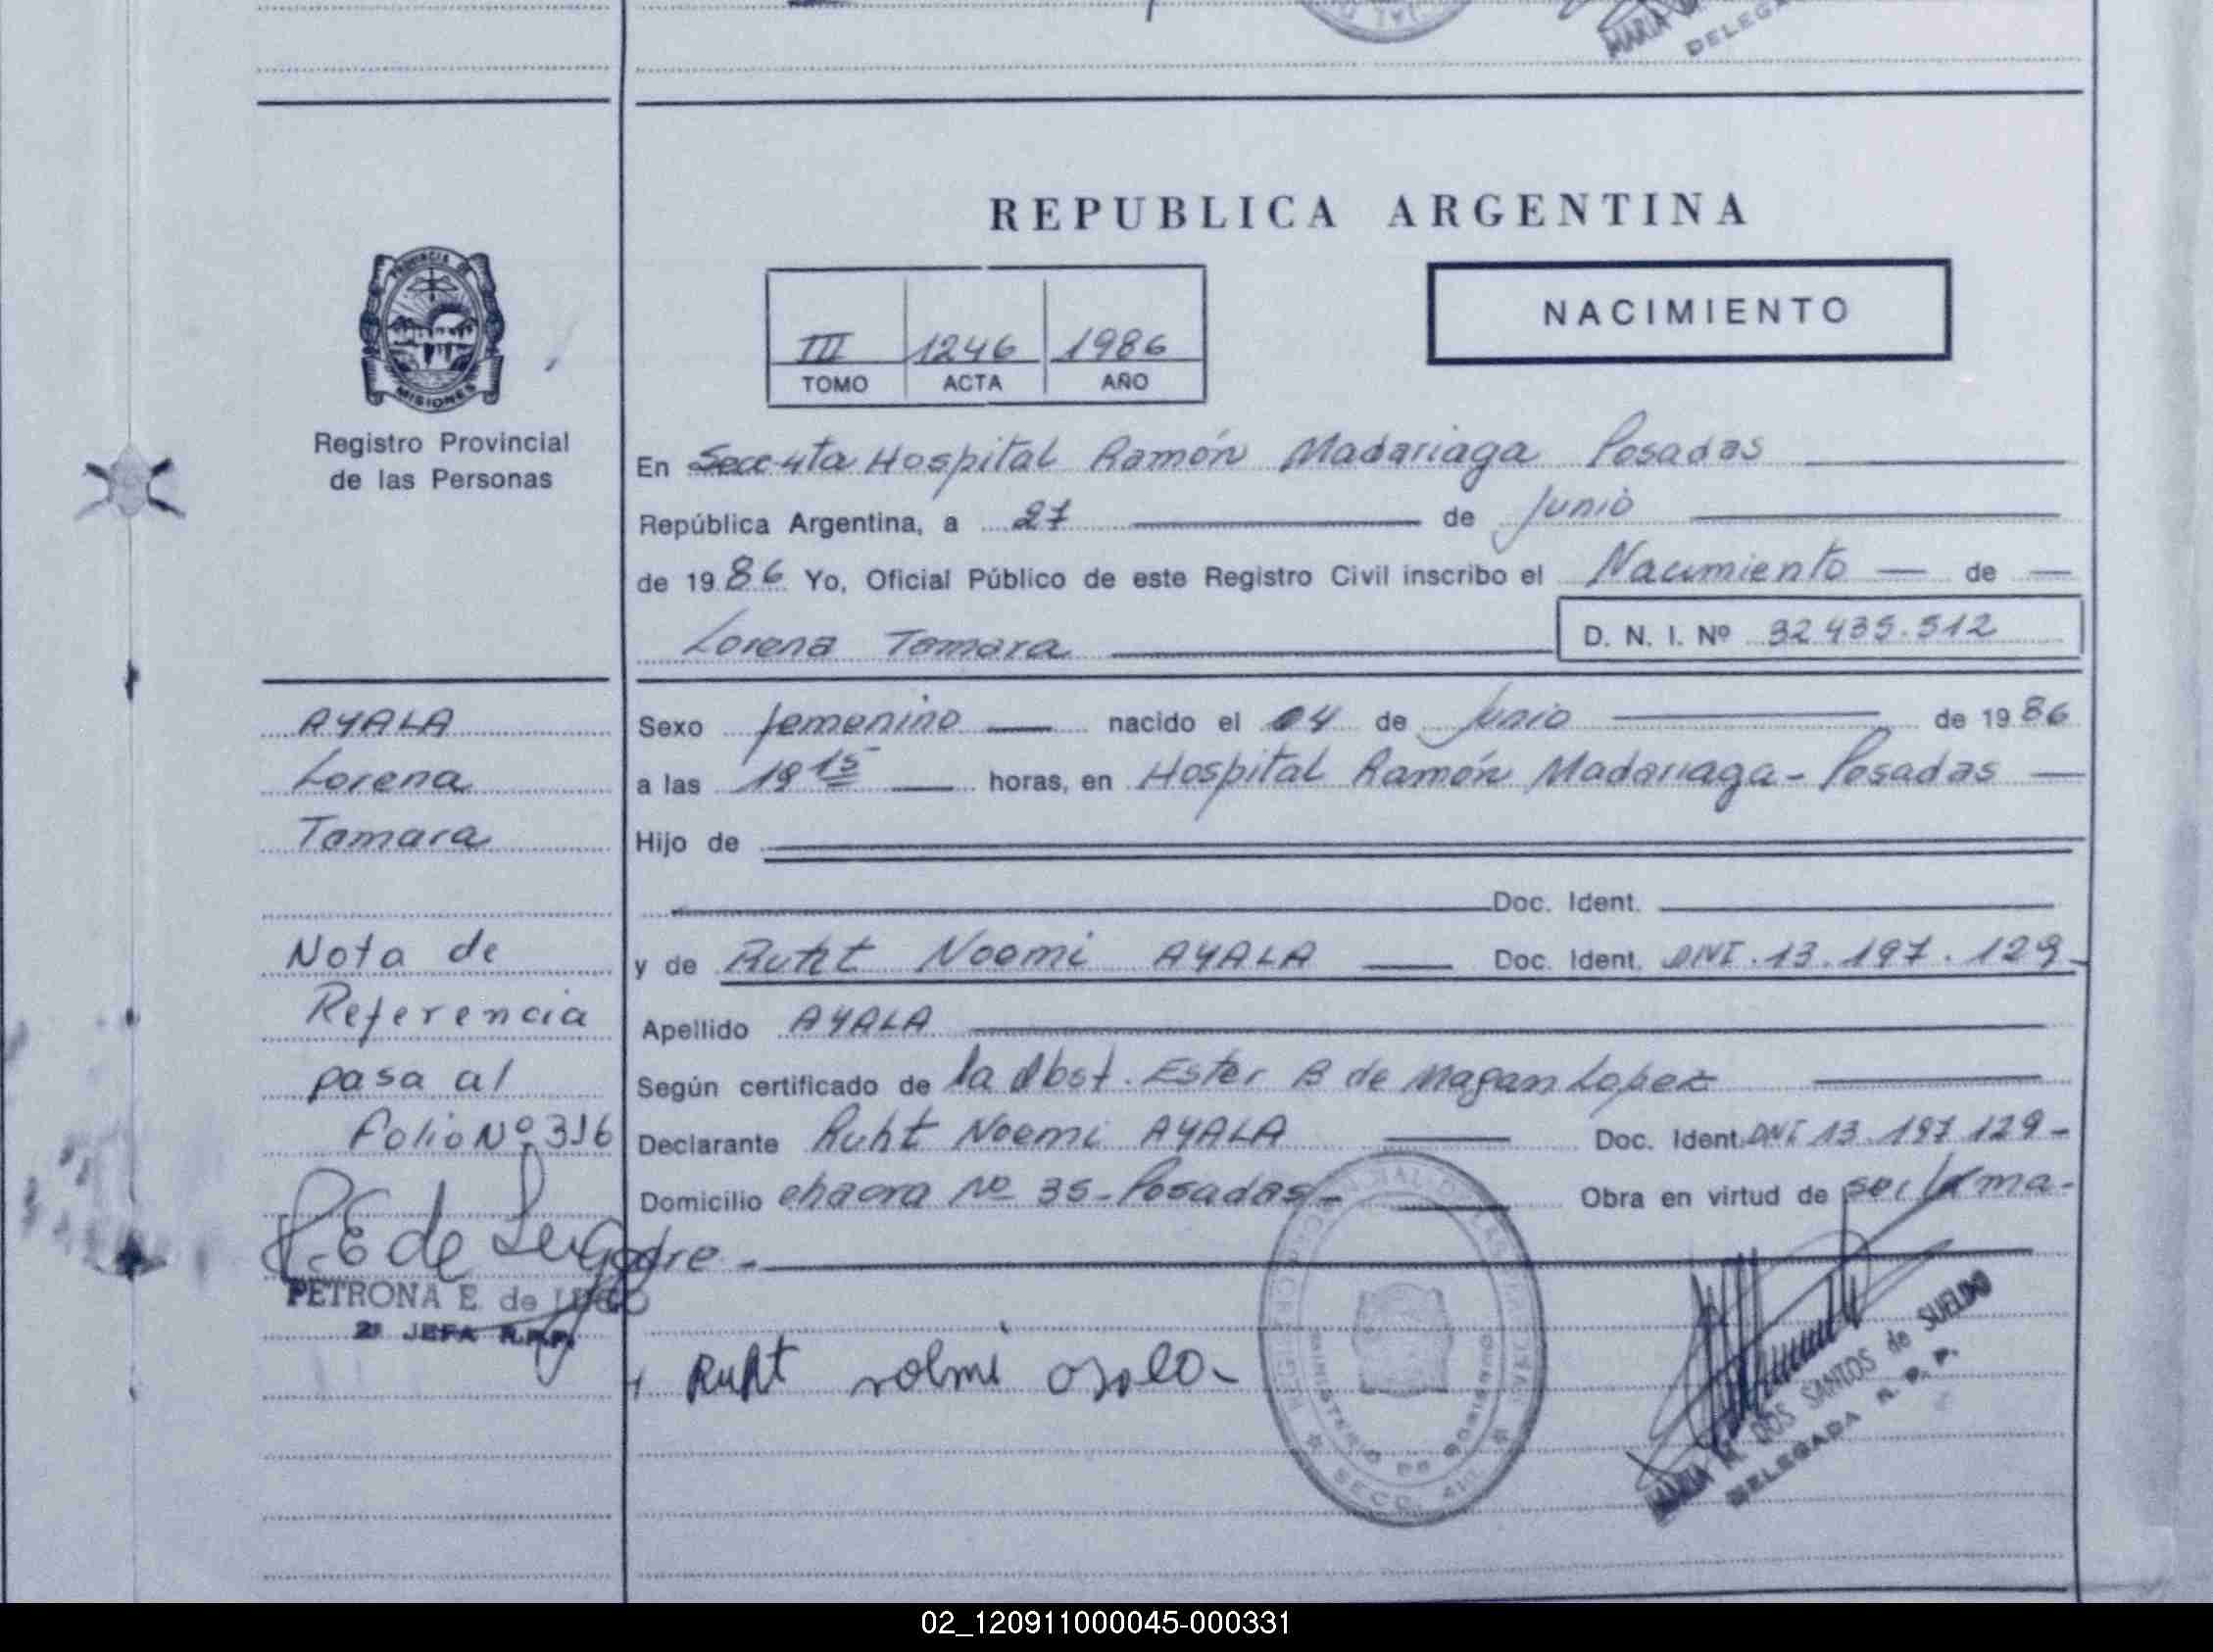 MARIA
DELEGA
REPUBLICA ARGENTINA
PROVINCIA DE
MISIONES
Registro Provincial
de las Personas
III 1246 1986
TOMO ACTA AÑO
NACIMIENTO
En Secc 4ta Hospital Ramón Madariaga Posadas
República Argentina, a 27 de Junio
de 1986 Yo, Oficial Público de este Registro Civil inscribo el Nacimiento de
Lorena Tamara D. N. I. Nº 32 435.512
AYALA
Lorena
Tamara
Nota de
Referencia
pasa al
folio Nº 316
P.E de Lugo
PETRONA E. de LUGO
2ª JEFA R.P.P.
Sexo femenino nacido el 04 de Junio de 1986
a las 19 15 horas, en Hospital Ramón Madariaga - Posadas
Hijo de
Doc. Ident.
y de Ruht Noemi AYALA Doc. Ident. DNI. 13.197.129
Apellido AYALA
Según certificado de la Obst. Ester B de Magan Lopez
Declarante Ruht Noemi AYALA Doc. Ident. DNI 13.197 129-
Domicilio chacra Nº 35- Posadas- Obra en virtud de ser la ma-
dre -
Ruht
MINISTERIO DE GOBIERNO
SECC. 4ta
MARIA M. DOS SANTOS de SUELDO
DELEGADA R. P. P.
02_120911000045-000331